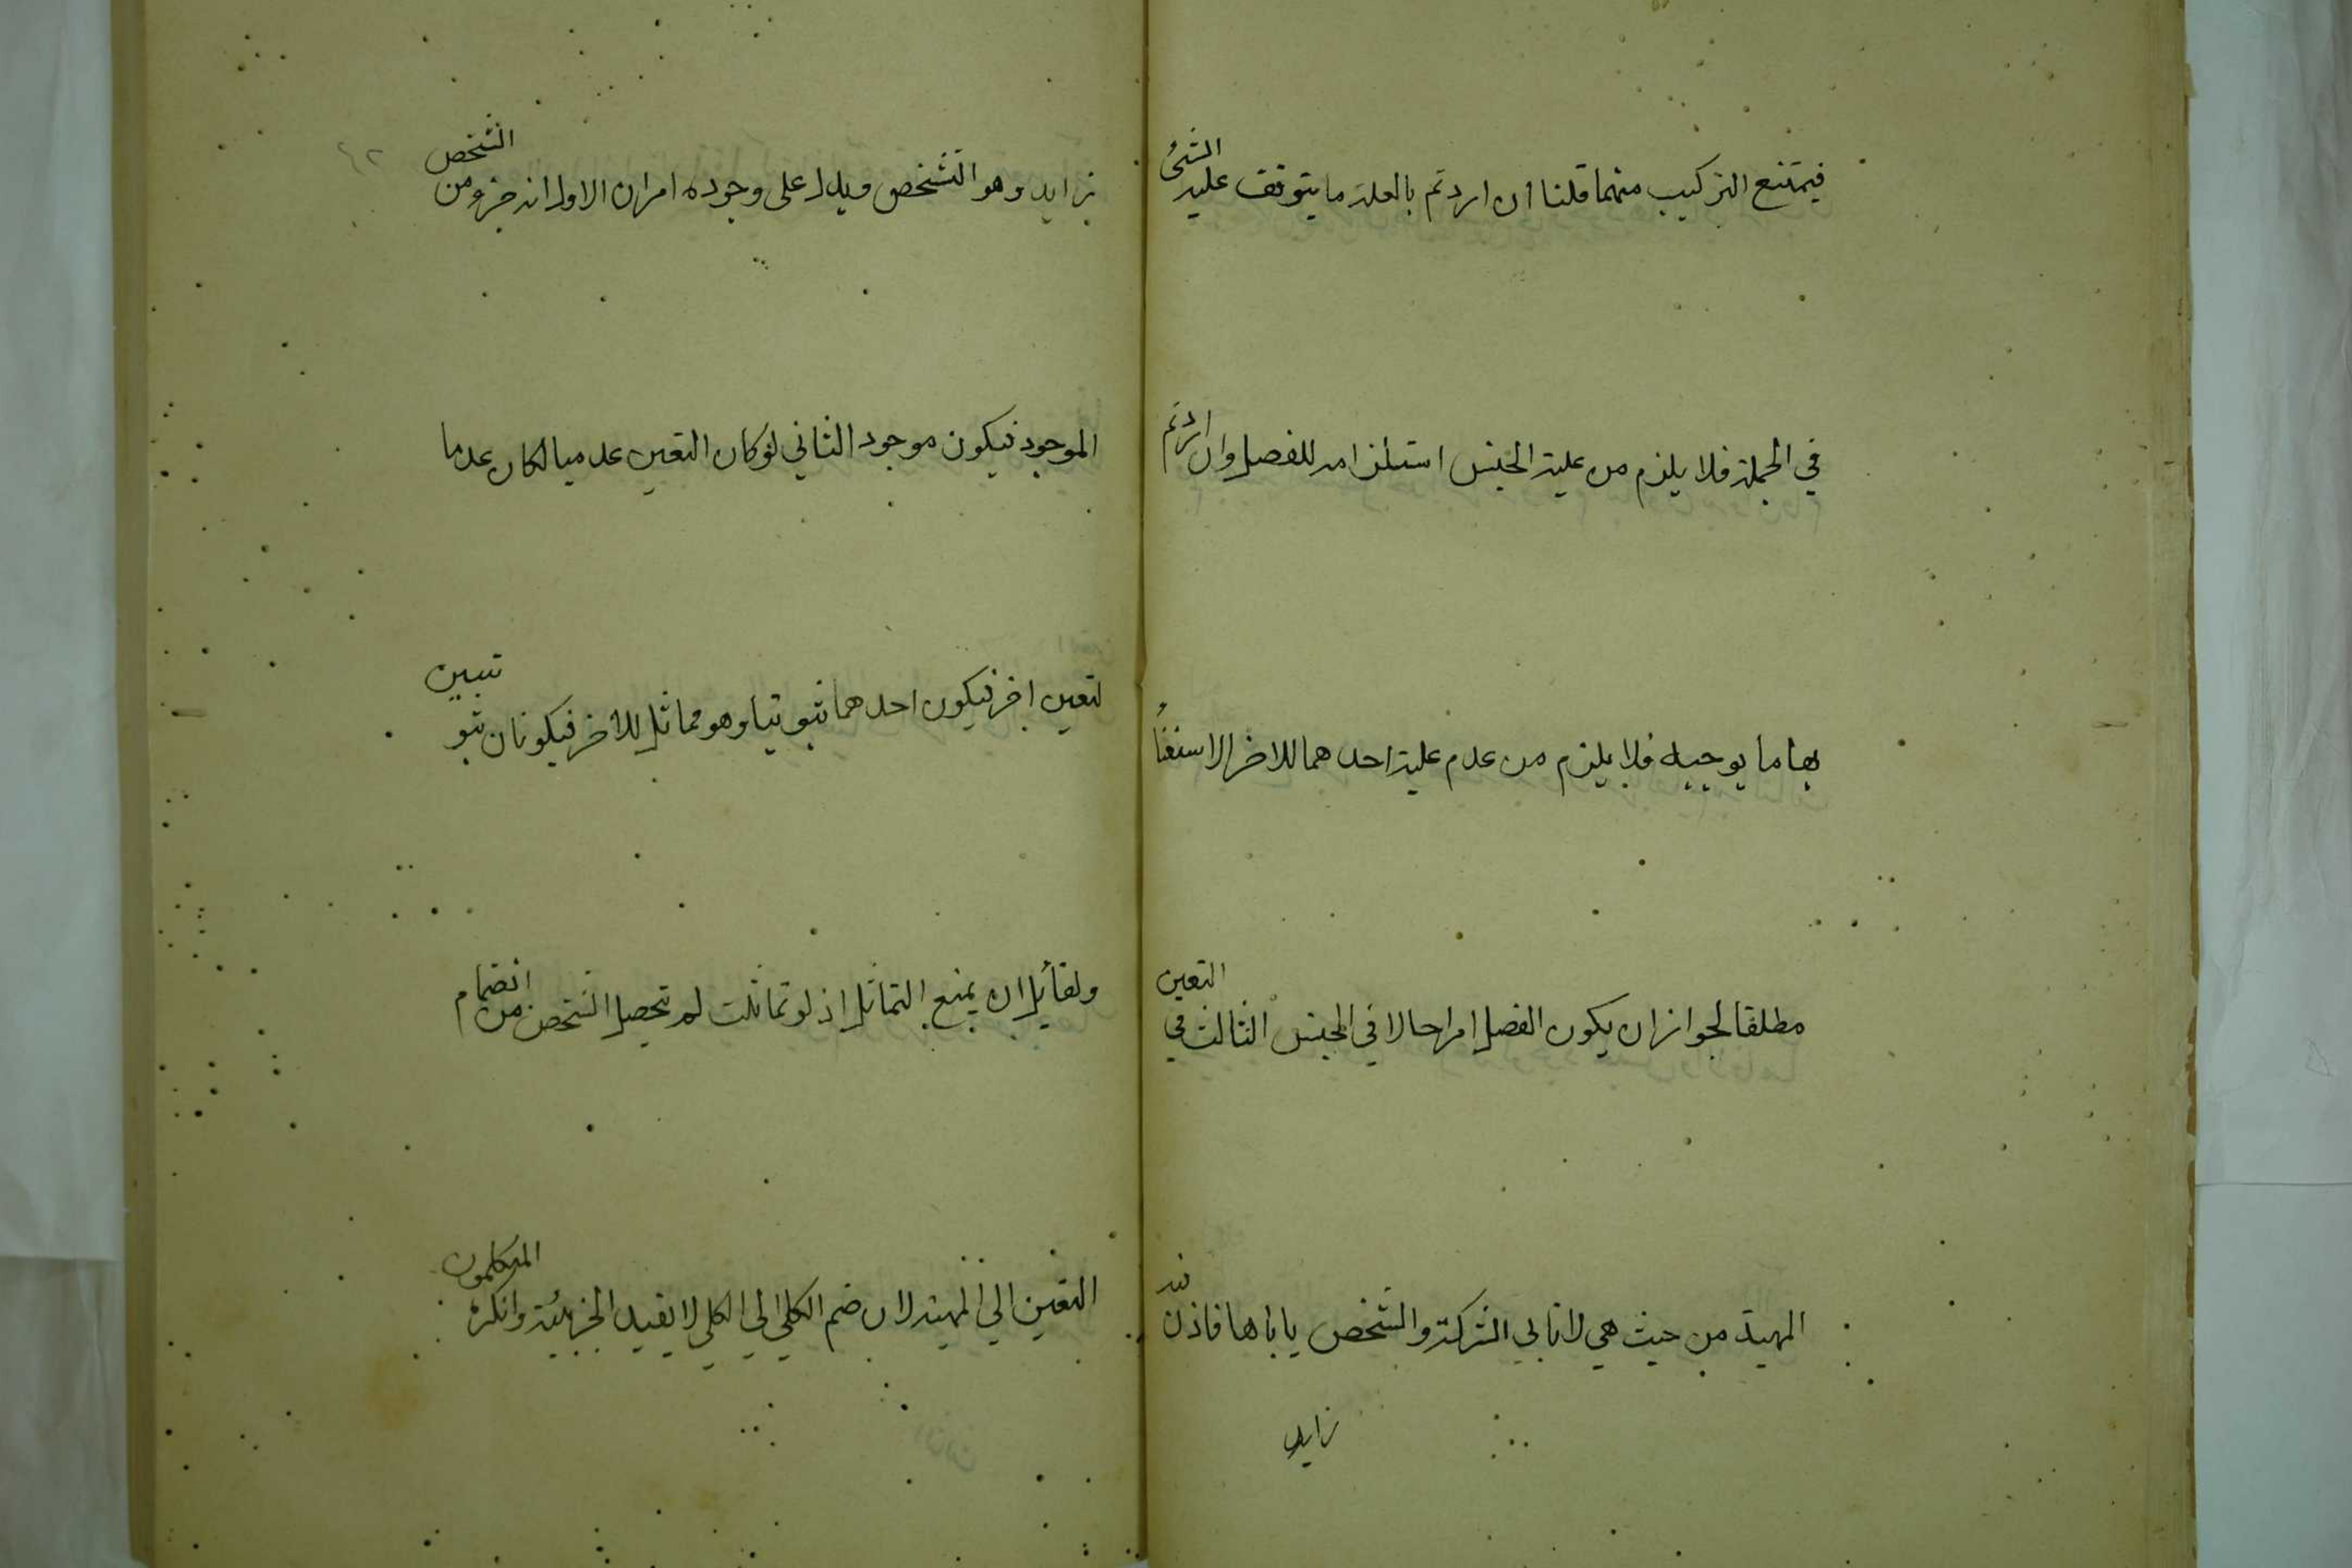 فيمتنع التركيب منهما قلنا ان اردتم بالعلة ما يتوقف عليه الشئ
في الجملة فلا يلزم من علية الجنس استلزامه للفصل وان اردتم
بها ما يوجبه فلا يلزم من عدم علية احدهما للاخر الاستغناء
مطلقا لجواز ان يكون الفصل امرا حالا في الجنس الثالث في التعين
المهية من حيث هي لا تابي الشركة والشخص ياباها فاذن فيه
زايد
زايد وهو التشخص ويدل على وجوده امران الاول انه جزء من الشخص
الموجود فيكون موجود الثاني لو كان التعين عدميا لكان عدما
لتعين اخر فيكون احدهما ثبوتيا وهو مماثل للاخر فيكونان ثبو تيين
ولقائل ان يمنع التماثل اذ لو تماثلت لم تحصل الشخص من انضمام
التعين الي المهية لان ضم الكلي الي الكلي لا يفيد الجزيئة وانكره المتكلمون